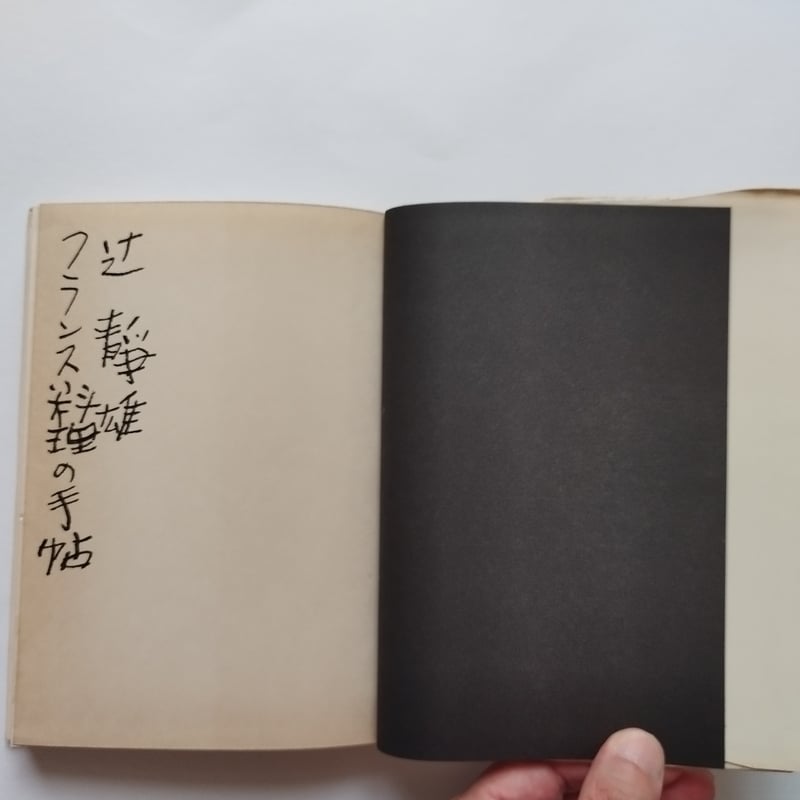 辻 静雄
フランス料理の手帖